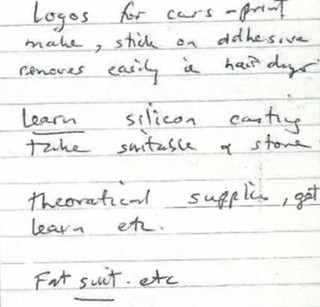 Logos for cars - print
make, stick on adhesive
removes easily ie hair dryer
Learn silicon casting
take suitable & stone
theoratical supplies, get
learn etc.
Fat suit. etc